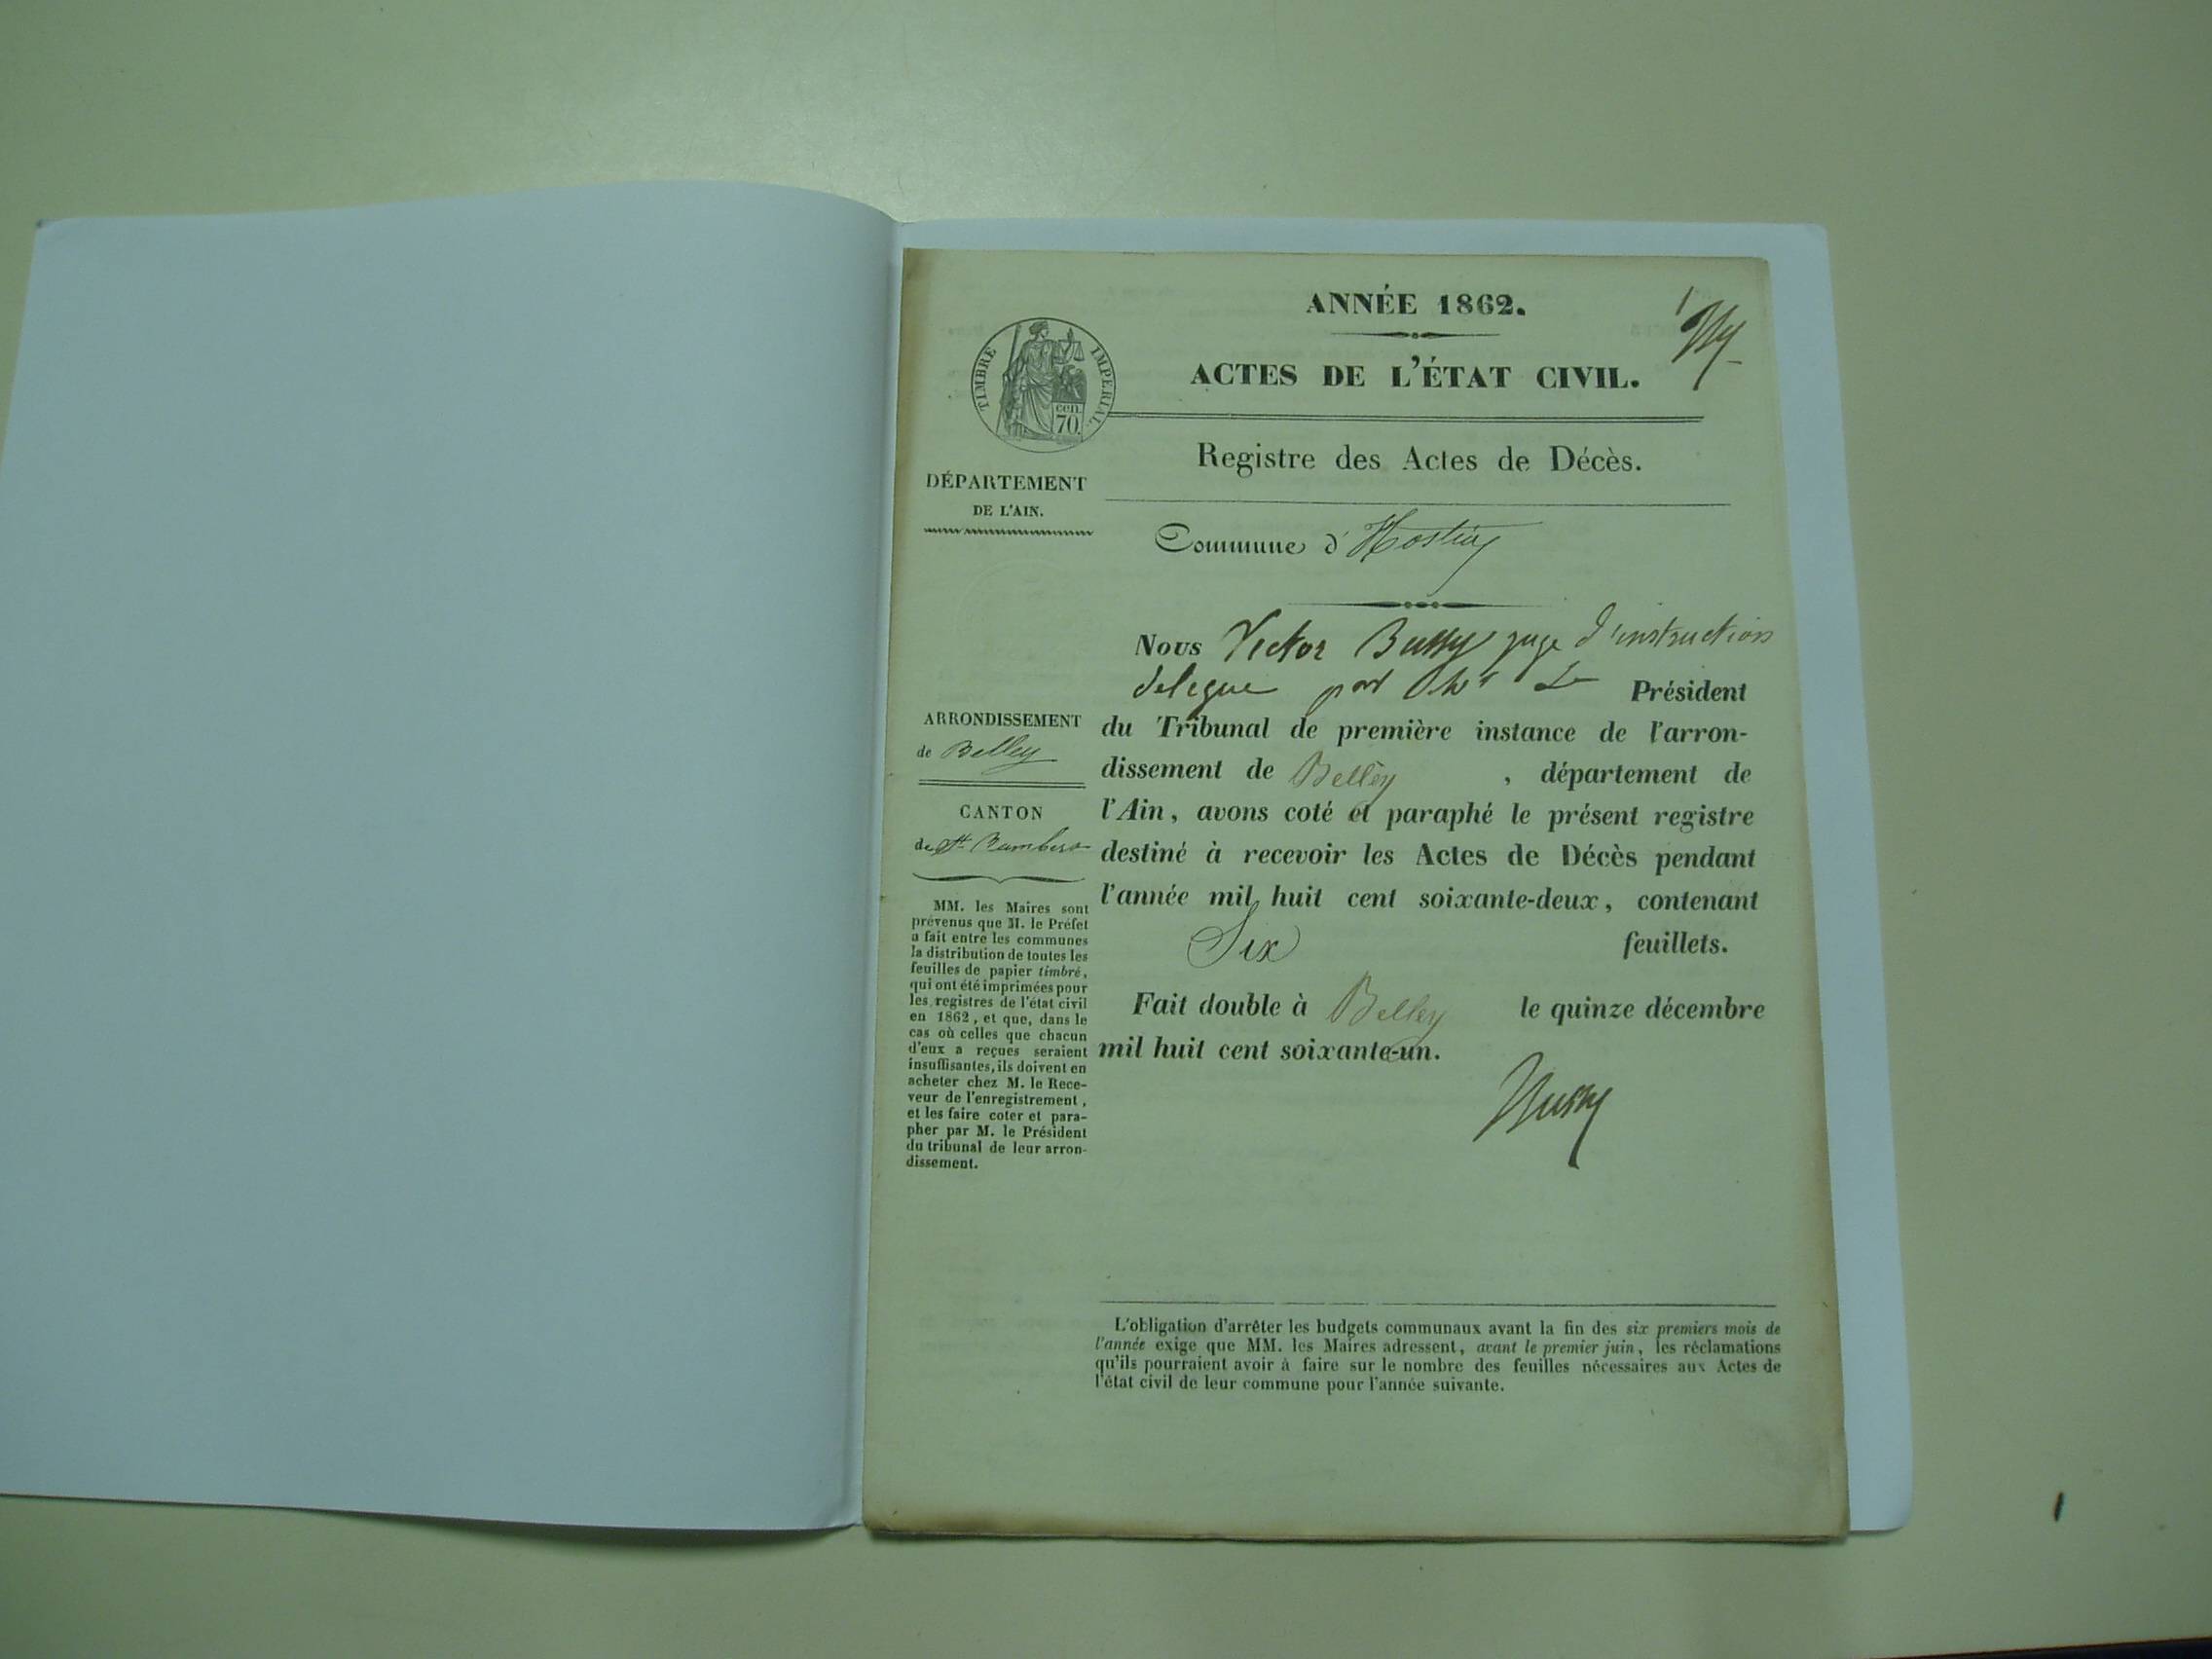 ANNÉE 1862.
ACTES DE L'ÉTAT CIVIL.
TIMBRE IMPERIAL.
cen.
70.
Registre des Actes de Décès.
DÉPARTEMENT
DE L'AIN.
Commune d'
Nous Victor Bussy juge d'instruction
delegue par Mr Le Président
du Tribunal de première instance de l'arron-
dissement de Belley, département de
l'Ain, avons coté et paraphé le présent registre
destiné à recevoir les Actes de Décès pendant
l'année mil huit cent soixante-deux, contenant
Six feuillets.
Fait double à Belley le quinze décembre
mil huit cent soixante-un.
Bussy
ARRONDISSEMENT
de Belley
CANTON
de St Rambert
MM. les Maires sont
prévenus que M. le Préfet
a fait entre les communes
la distribution de toutes les
feuilles de papier timbré,
qui ont été imprimées pour
les registres de l'état civil
en 1862, et que, dans le
cas où celles que chacun
d'eux a reçues seraient
insuffisantes, ils doivent en
acheter chez M. le Rece-
veur de l'enregistrement,
et les faire coter et para-
pher par M. le Président
du tribunal de leur arron-
dissement.
L'obligation d'arrêter les budgets communaux avant la fin des six premiers mois de
l'année exige que MM. les Maires adressent, avant le premier juin, les réclamations
qu'ils pourraient avoir à faire sur le nombre des feuilles nécessaires aux Actes de
l'état civil de leur commune pour l'année suivante.